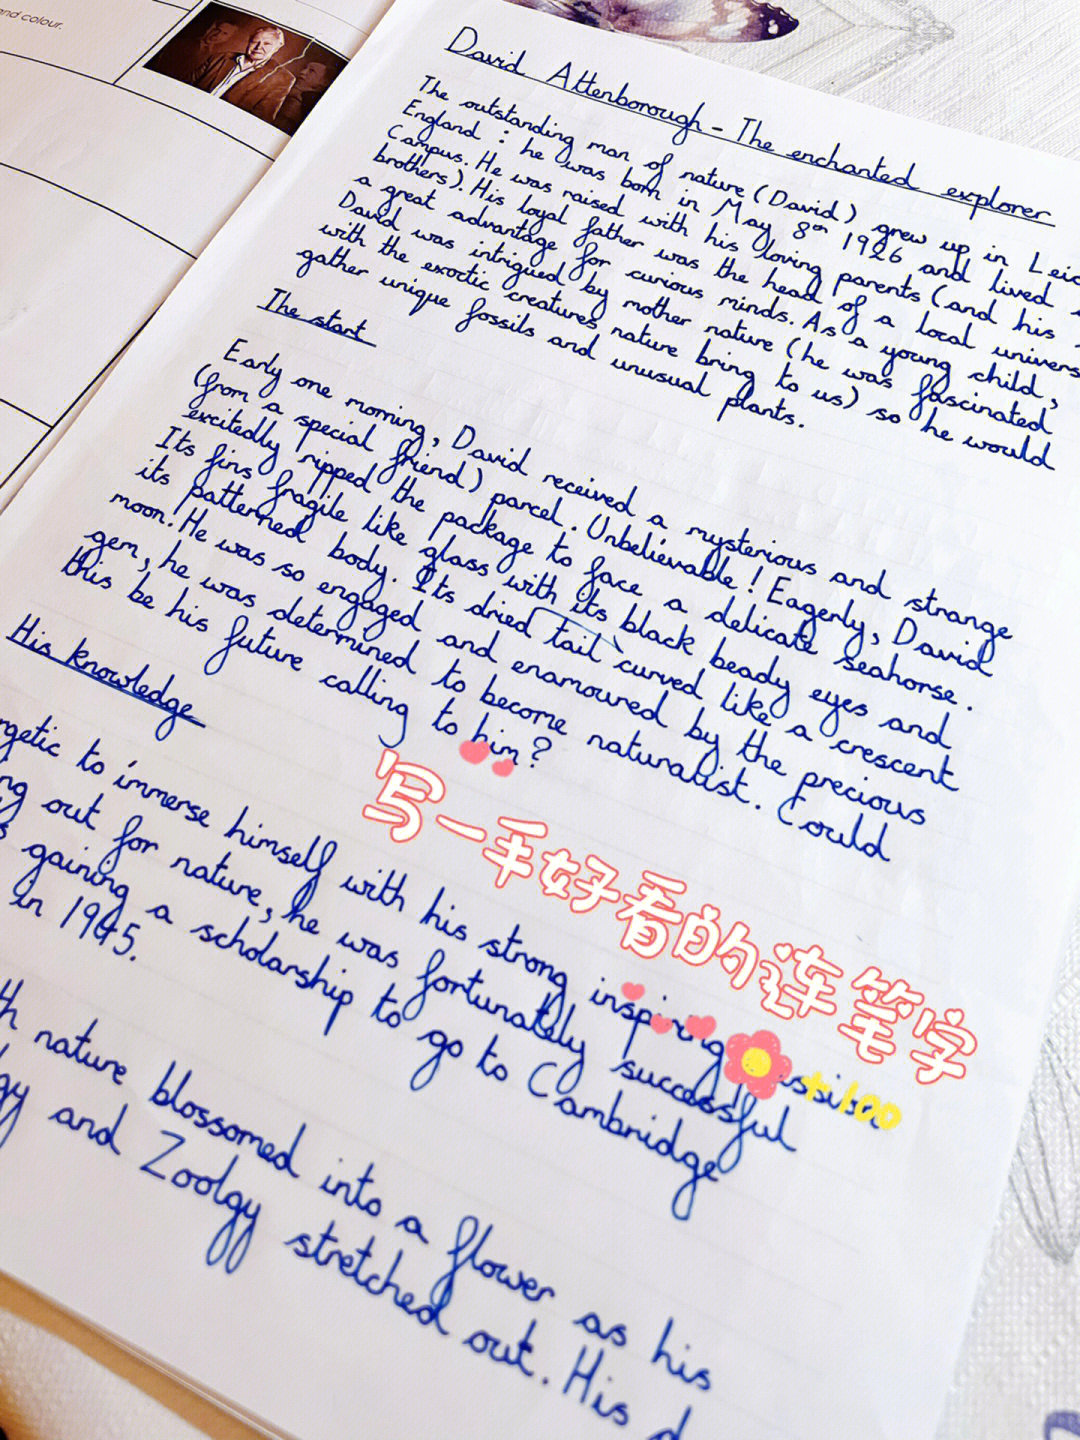 and colour.
David Attenborough - The enchanted explorer
The outstanding man of nature (David) grew up in Leic
England : he was born in May 8th 1926 and lived
Campus. He was raised with his loving parents (and his
brothers). His loyal father was the head of a local univers
a great advantage for curious minds. As a young child,
David was intrigued by mother nature (he was fascinated
with the exoctic creatures nature bring to us) so he would
gather unique fossils and unusual plants.
The start
Early one morning, David received a mysterious and strange
(from a special friend) parcel. Unbelievable! Eagerly, David
excitedly ripped the package to face a delicate seahorse.
Its fins fragile like glass with its black beady eyes and
its patterned body. Its dried tail curved like a crescent
moon. He was so engaged and enamoured by the precious
gem, he was determined to become naturalist. Could
this be his future calling to him?
His knowledge
rgetic to immerse himself with his strong inspiring
ng out for nature, he was fortunately successful
s gaining a scholarship to go to Cambridge
in 1945.
th nature blossomed into a flower as his
gy and Zoolgy stretched out. His d
写一手好看的连笔字
+100